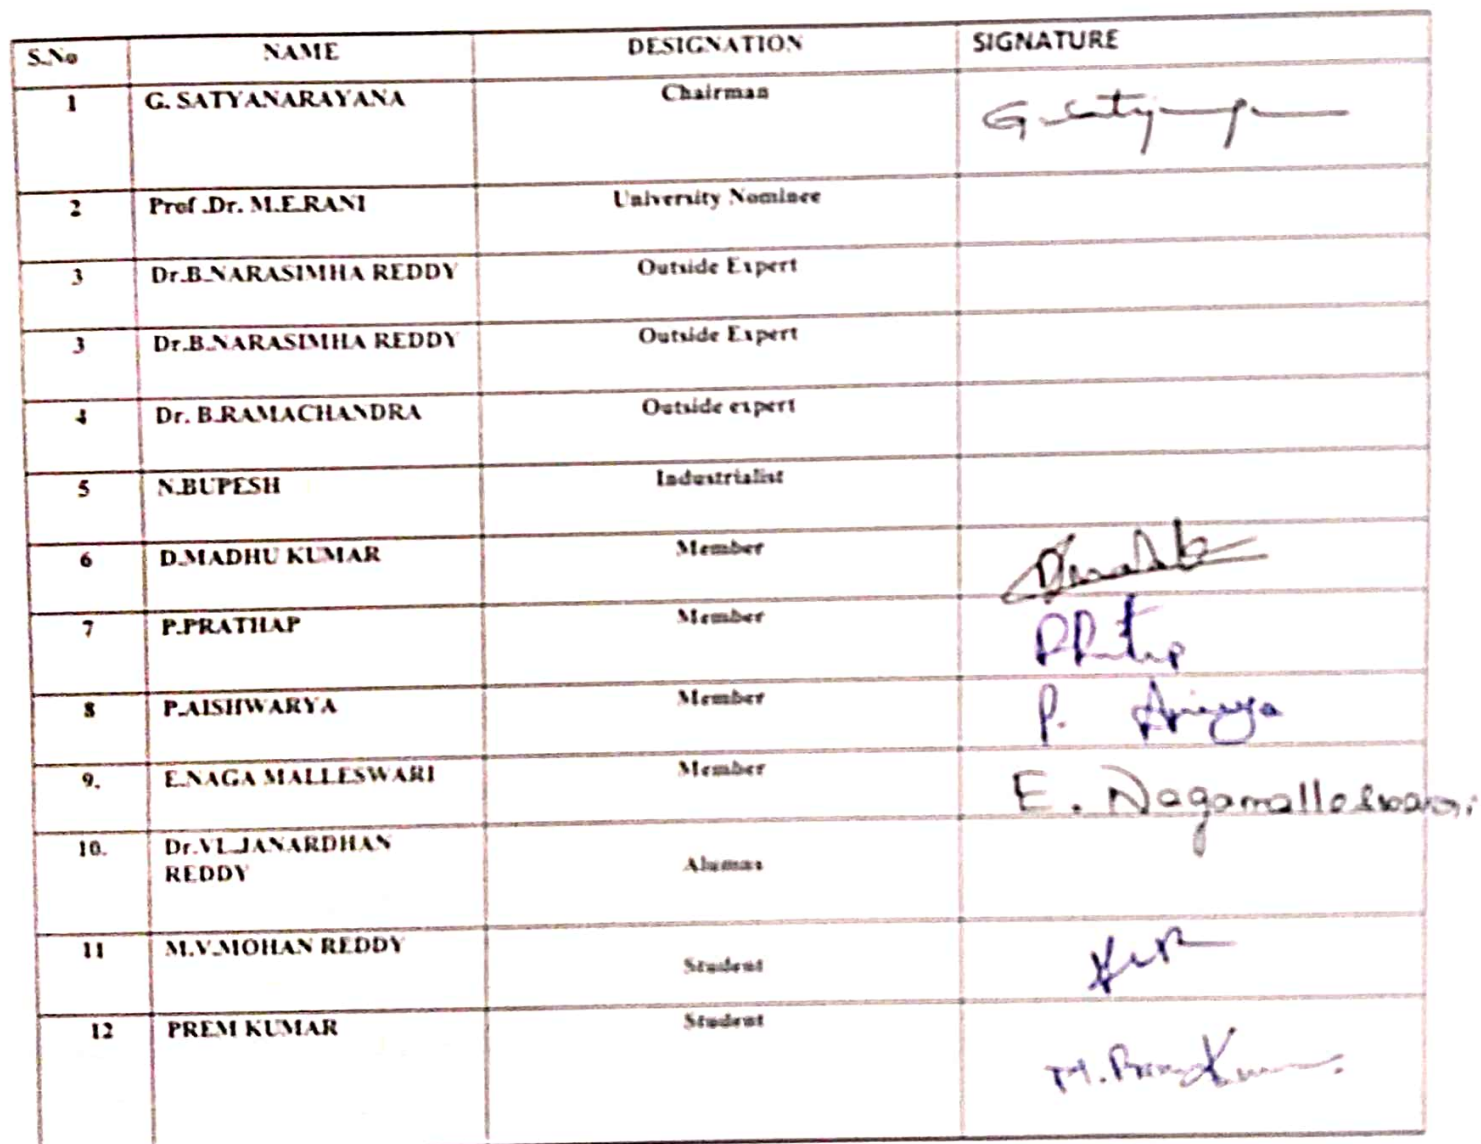 S.No NAME DESIGNATION SIGNATURE
1 G. SATYANARAYANA Chairman
2 Prof .Dr. M.E.RANI University Nominee
3 Dr.B.NARASIMHA REDDY Outside Expert
3 Dr.B.NARASIMHA REDDY Outside Expert
4 Dr. B.RAMACHANDRA Outside expert
5 N.BUPESH Industrialist
6 D.MADHU KUMAR Member
7 P.PRATHAP Member
8 P.AISHWARYA Member P.
9. E.NAGA MALLESWARI Member E. Nagamalleswari
10. Dr.VL.JANARDHAN
REDDY
11 M.V.MOHAN REDDY Student
12 PREM KUMAR Student M. Prem Kumar